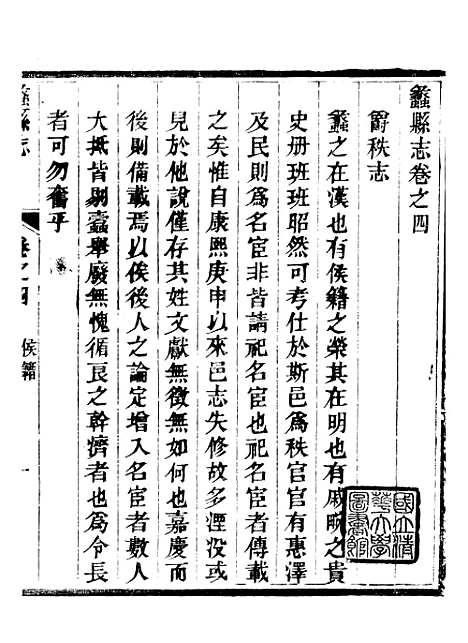 蠡縣志卷之四
爵秩志
蠡之在漢也有侯籍之榮其在明也有戚畹之貴
史册班班昭然可考仕於斯邑爲秩官官有惠澤
及民則爲名宦非皆請祀名宦也祀名宦者傳載
之矣惟自康熙庚申以來邑志失修故多湮没或
見於他說僅存其姓文獻無徵無如何也嘉慶而
後則備載焉以俟後人之論定增入名宦者數人
大抵皆剔蠹舉廢無愧循良之幹濟者也爲令長
者可勿奮乎
蠡縣志
卷之四
侯籍
一
國立清
華大學
圖書館